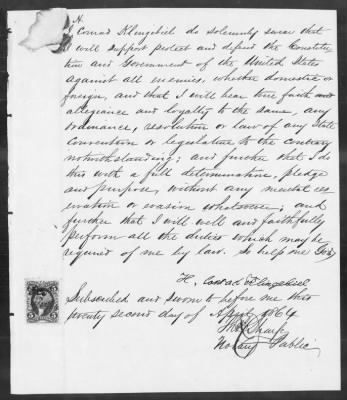 H.
I Conrad Klingebiel do solemnly swear that
I will support protect and defend the Constitu
tion and Government of the United States
against all enemies, whether domestic or
foreign, and that I will bear true faith and
allegiance and loyalty to the same, any
ordinance, resolution or law of any State
Convention or legislature to the contrary
notwithstanding; and further that I do
this with a full determination, pledge
and purpose, without any mental res
ervation or evasion whatsoever; and
further that I will well and faithfully
perform all the duties which may be
required of me by law. So help me God
H. Conrad Klingebiel
Subscribed and sworn to before me this
twenty second day of April 1864
Sharp
Notary Public